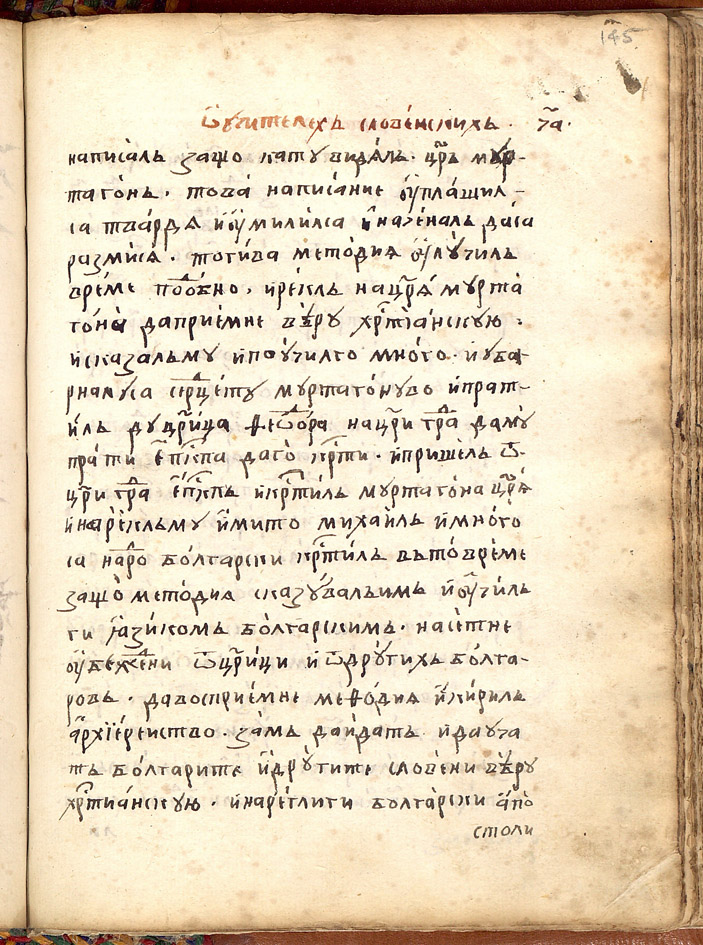 145
Ѿ ꙋчителехъ словенскихъ. ч҃а.
написалъ защо катꙋ видѧлъ. цр҃ь мꙋр-
тагонъ. това написание ѹплашил-
са твардѧ и ѹмилилса и наченалъ даса
размисѧ. тогива методиѧ ѹлꙋчилъ
време подобно, и реклъ на цр҃ѧ мꙋрта
гона даприемне вѣрꙋ хрⷭ҇тианскꙋю.
и сказалъмꙋ и поꙋчилго много. и ꙋба-
рналꙋса срⷣцетꙋ мꙋртагонꙋво и прат-
илъ дꙋщрица ѳеѡⷣора на цр҃и граⷣ дамꙋ
прати епⷭ҇кпа даго крⷭ҇ти. и пришелъ ѿ
цр҃и граⷣ епⷭ҇кпъ и крⷭ҇тилъ мꙋртагона цр҃ѧ
и нареклъмꙋ имито михаилъ и много
са нароⷣ болгарски крⷭ҇тилъ въто време
защо методиѧ сказꙋвалъимъ и ѹчилъ
ги ꙗзикомъ болгарскимъ. насетне
ѹбежⷣени ѿ цр҃ици и ѿ дрꙋгихъ болга-
ровъ. да восприемне меѳодиѧ и кирилъ
архїерейство. замъ да идатъ и да ꙋча
тъ болгарите и дрꙋгите словени вѣрꙋ
хрⷭ҇тианскꙋю. и нареглиги болгарски апо
столи